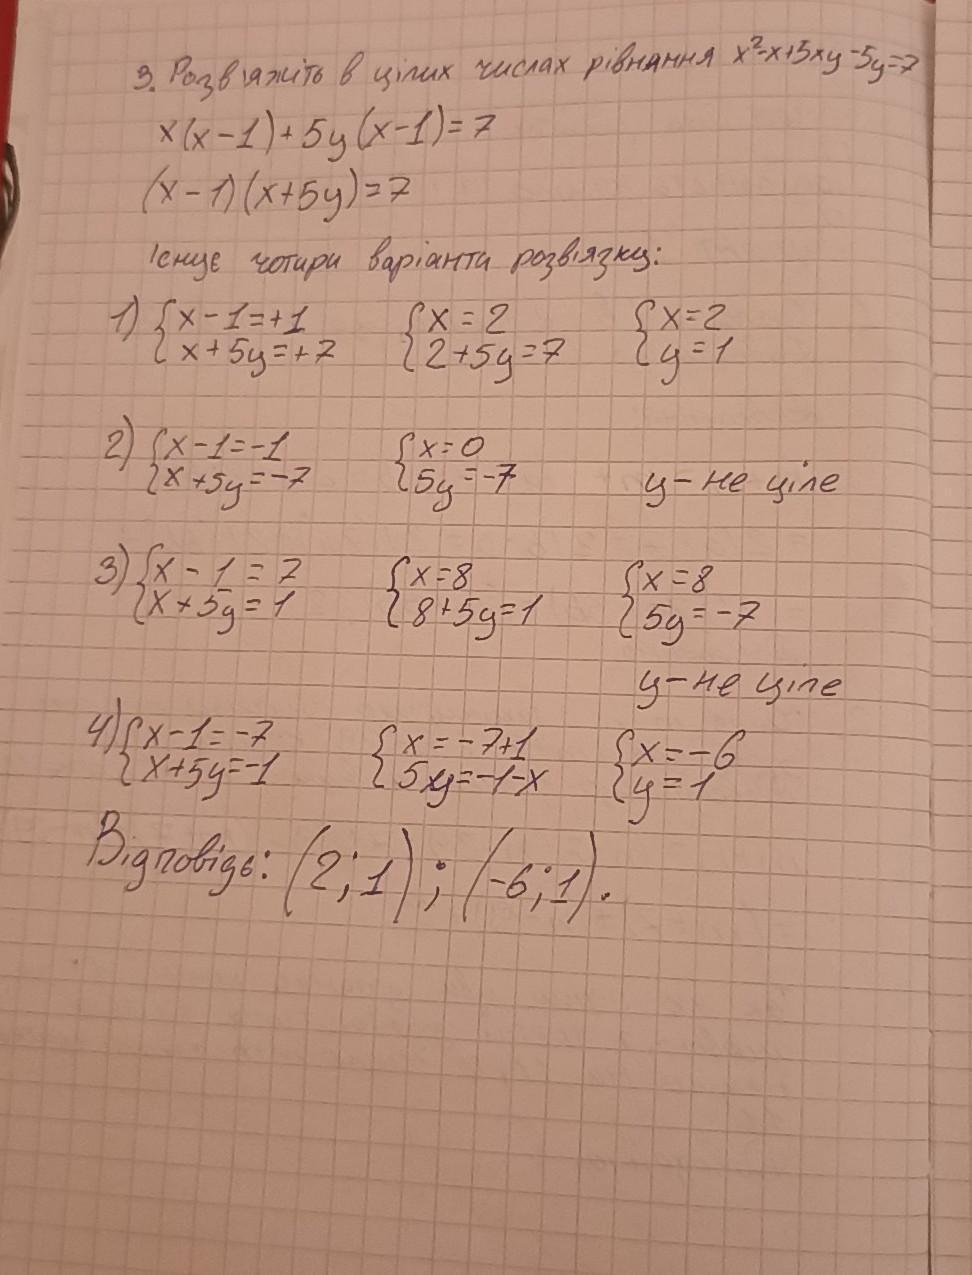 3. Розв'яжіть в цілих числах рівняння x²-x+5xy-5y=7
x(x-1)+5y(x-1)=7
(x-1)(x+5y)=7
Існує чотири варіанти розв'язку:
1) {x-1=+1 {x=2 {x=2
{x+5y=+7 {2+5y=7 {y=1
2) {x-1=-1 {x=0
{x+5y=-7 {5y=-7 y-не ціле
3) {x-1=7 {x=8 {x=8
{x+5y=1 {8+5y=1 {5y=-7
y-не ціле
4) {x-1=-7 {x=-7+1 {x=-6
{x+5y=-1 {5y=-1-x {y=1
Відповідь: (2;1); (-6;1).